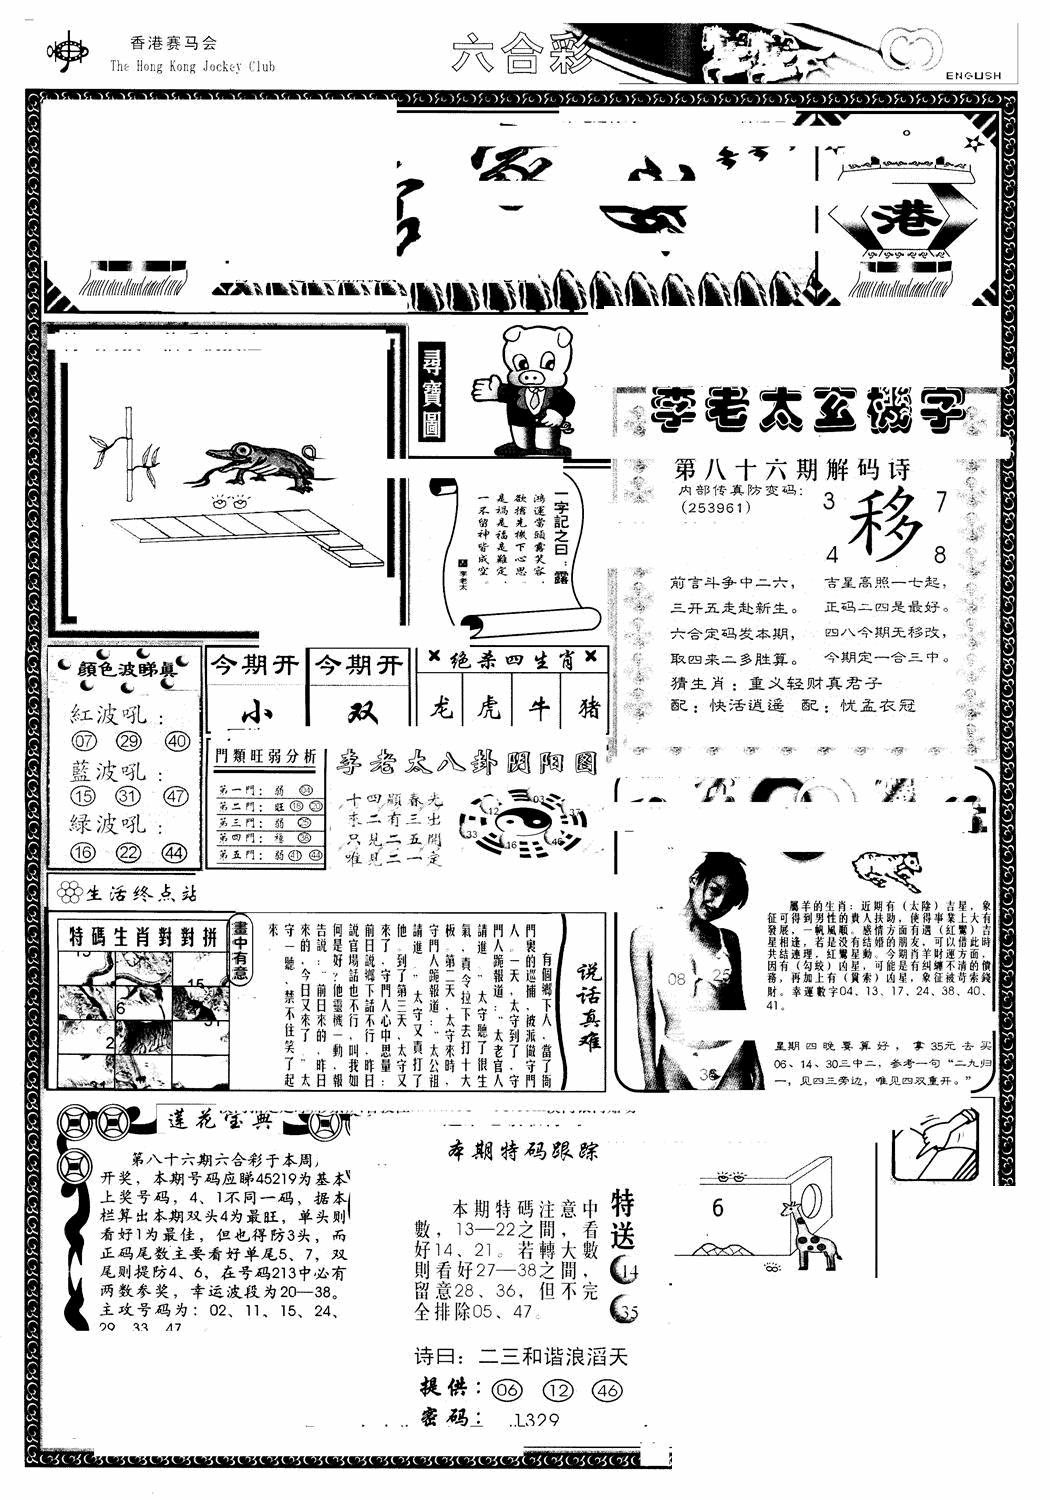 香港赛马会
The Hong Kong Jockey Club
六合彩
ENGLISH
港
尋寶圖
李老太玄機字
第八十六期解码诗
内部传真防变码:
(253961)
3
7
移
4
8
前言斗争中二六,
吉星高照一七起,
三开五走赴新生。
正码二四是最好。
六合定码发本期,
四八今期无移改,
取四来二多胜算。
今期定一合三中。
猜生肖:重义轻财真君子
配:快活逍遥 配:忧孟衣冠
一字記之曰:露
鴻運當頭露笑容,
欲擒先擒下心思,
是禍是福是難定,
一不留神皆成空。
李老太
顏色波睇真
紅波吼:
07 29 40
藍波吼:
15 31 47
绿波吼:
16 22 44
今期开
今期开
小
双
绝杀四生肖
龙 虎 牛 猪
門類旺弱分析
第一門:弱 04
第二門:旺 18 20
第三門:弱 25
第四門:穩 36
第五門:弱 41 44
李老太八卦阴阳图
十四顯春光
來二有三出
只見二五開
唯見二一定
03
12
37
33
16
46
生活终点站
特碼生肖對對拼
畫中有意
说话真难
有個鄉下人,當了衙
門裏的巡捕,被派做守門
人。一天,太守到了,守
門人跪報道:“太老官人
請進。”太守聽了很生
氣,責令拉下去打十大
板。第二天,太守來時,
守門人跪報道:“太公祖
請進。”太守又責打了
他。到了第三天,太守又
來了,守門人心中思量:
前日説鄉下話不行,昨日
説官場話也不行,叫我如
何是好?他靈機一動,報
告説:“前日來的,昨日
來的,今日又來了。”太
守一聽,禁不住笑了起
來
08 25
36
屬羊的生肖:近期有(太陰)吉星,象
征可得到男性的貴人扶助,使得事業上大有
發展,一帆風順。感情方面有遇(紅鸞)吉
星相逢,若是没有結婚的朋友,可以借此時
共結連理,紅鸞星動。今期肖羊財運方面,
因有(勾絞)凶星,可能是有糾纏不清的債
務,再加上有(貫索)凶星,象征被苛索錢
財。幸運數字04、13、17、24、38、40、
41。
星期四晚要算好,拿35元去买
06、14、30三中二,参考一句“二九归
一,见四三旁边,唯见四双重开。”
莲花宝典
第八十六期六合彩于本周
开奖,本期号码应睇45219为基本
上奖号码,4、1不同一码,据本
栏算出本期双头4为最旺,单头则
看好1为最佳,但也得防3头,而
正码尾数主要看好单尾5、7,双
尾则提防4、6,在号码213中必有
两数参奖,幸运波段为20—38。
主攻号码为:02、11、15、24、
29、33、47
本期特码跟踪
本期特碼注意中
數,13—22之間,看
好14、21。若轉大數
則看好27—38之間,
留意28、36,但不完
全排除05、47。
特送
14
35
诗曰:二三和谐浪滔天
提供:06 12 46
密码:1329
6